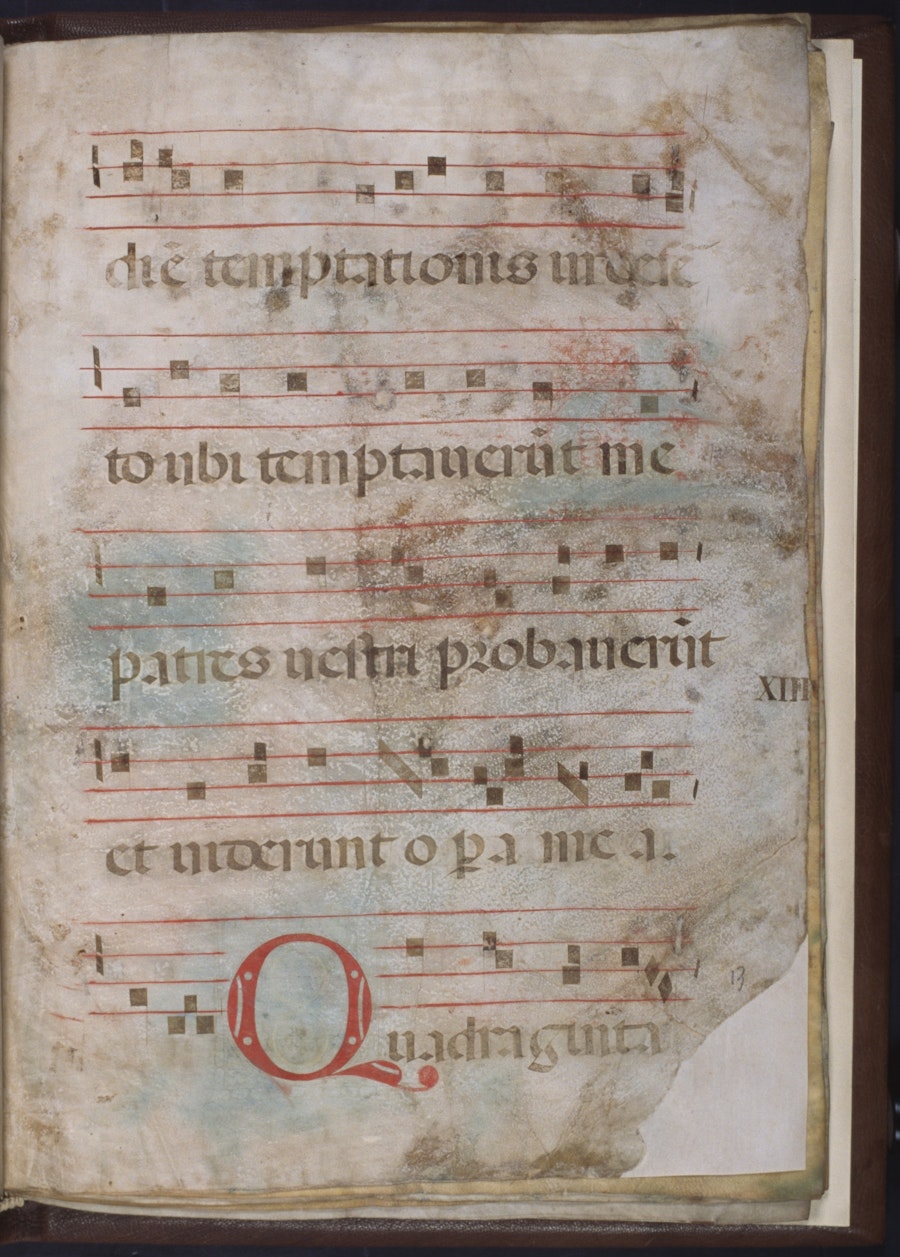 diē temptationis in dese
to ubi temptauerūt me
patres uestri probauerūt
XIII
et uiderunt opa mea.
13
Quadraginta